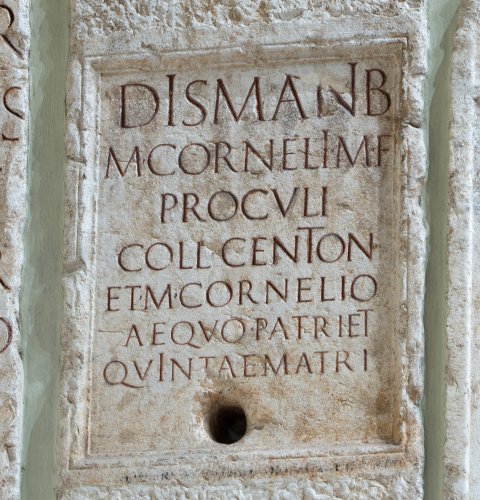 DIS MANIB
M·CORNELI M F
PROCVLI
COLL CENTON
ET·M·CORNELIO
AEQVO·PATRI ET
QVINTAE MATRI